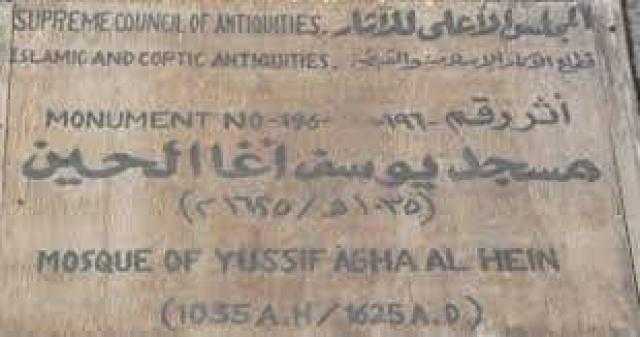 SUPREME COUNCIL OF ANTIQUITIES. المجلس الأعلى للآثار
ISLAMIC AND COPTIC ANTIQUITIES. قطاع الآثار الإسلامية والقبطية
MONUMENT NO-196- أثر رقم -١٩٦-
مسجد يوسف أغا الحين
(١٠٣٥ هـ / ١٦٢٥ م)
MOSQUE OF YUSSIF AGHA AL HEIN
(1035 A.H/1625 A.D)